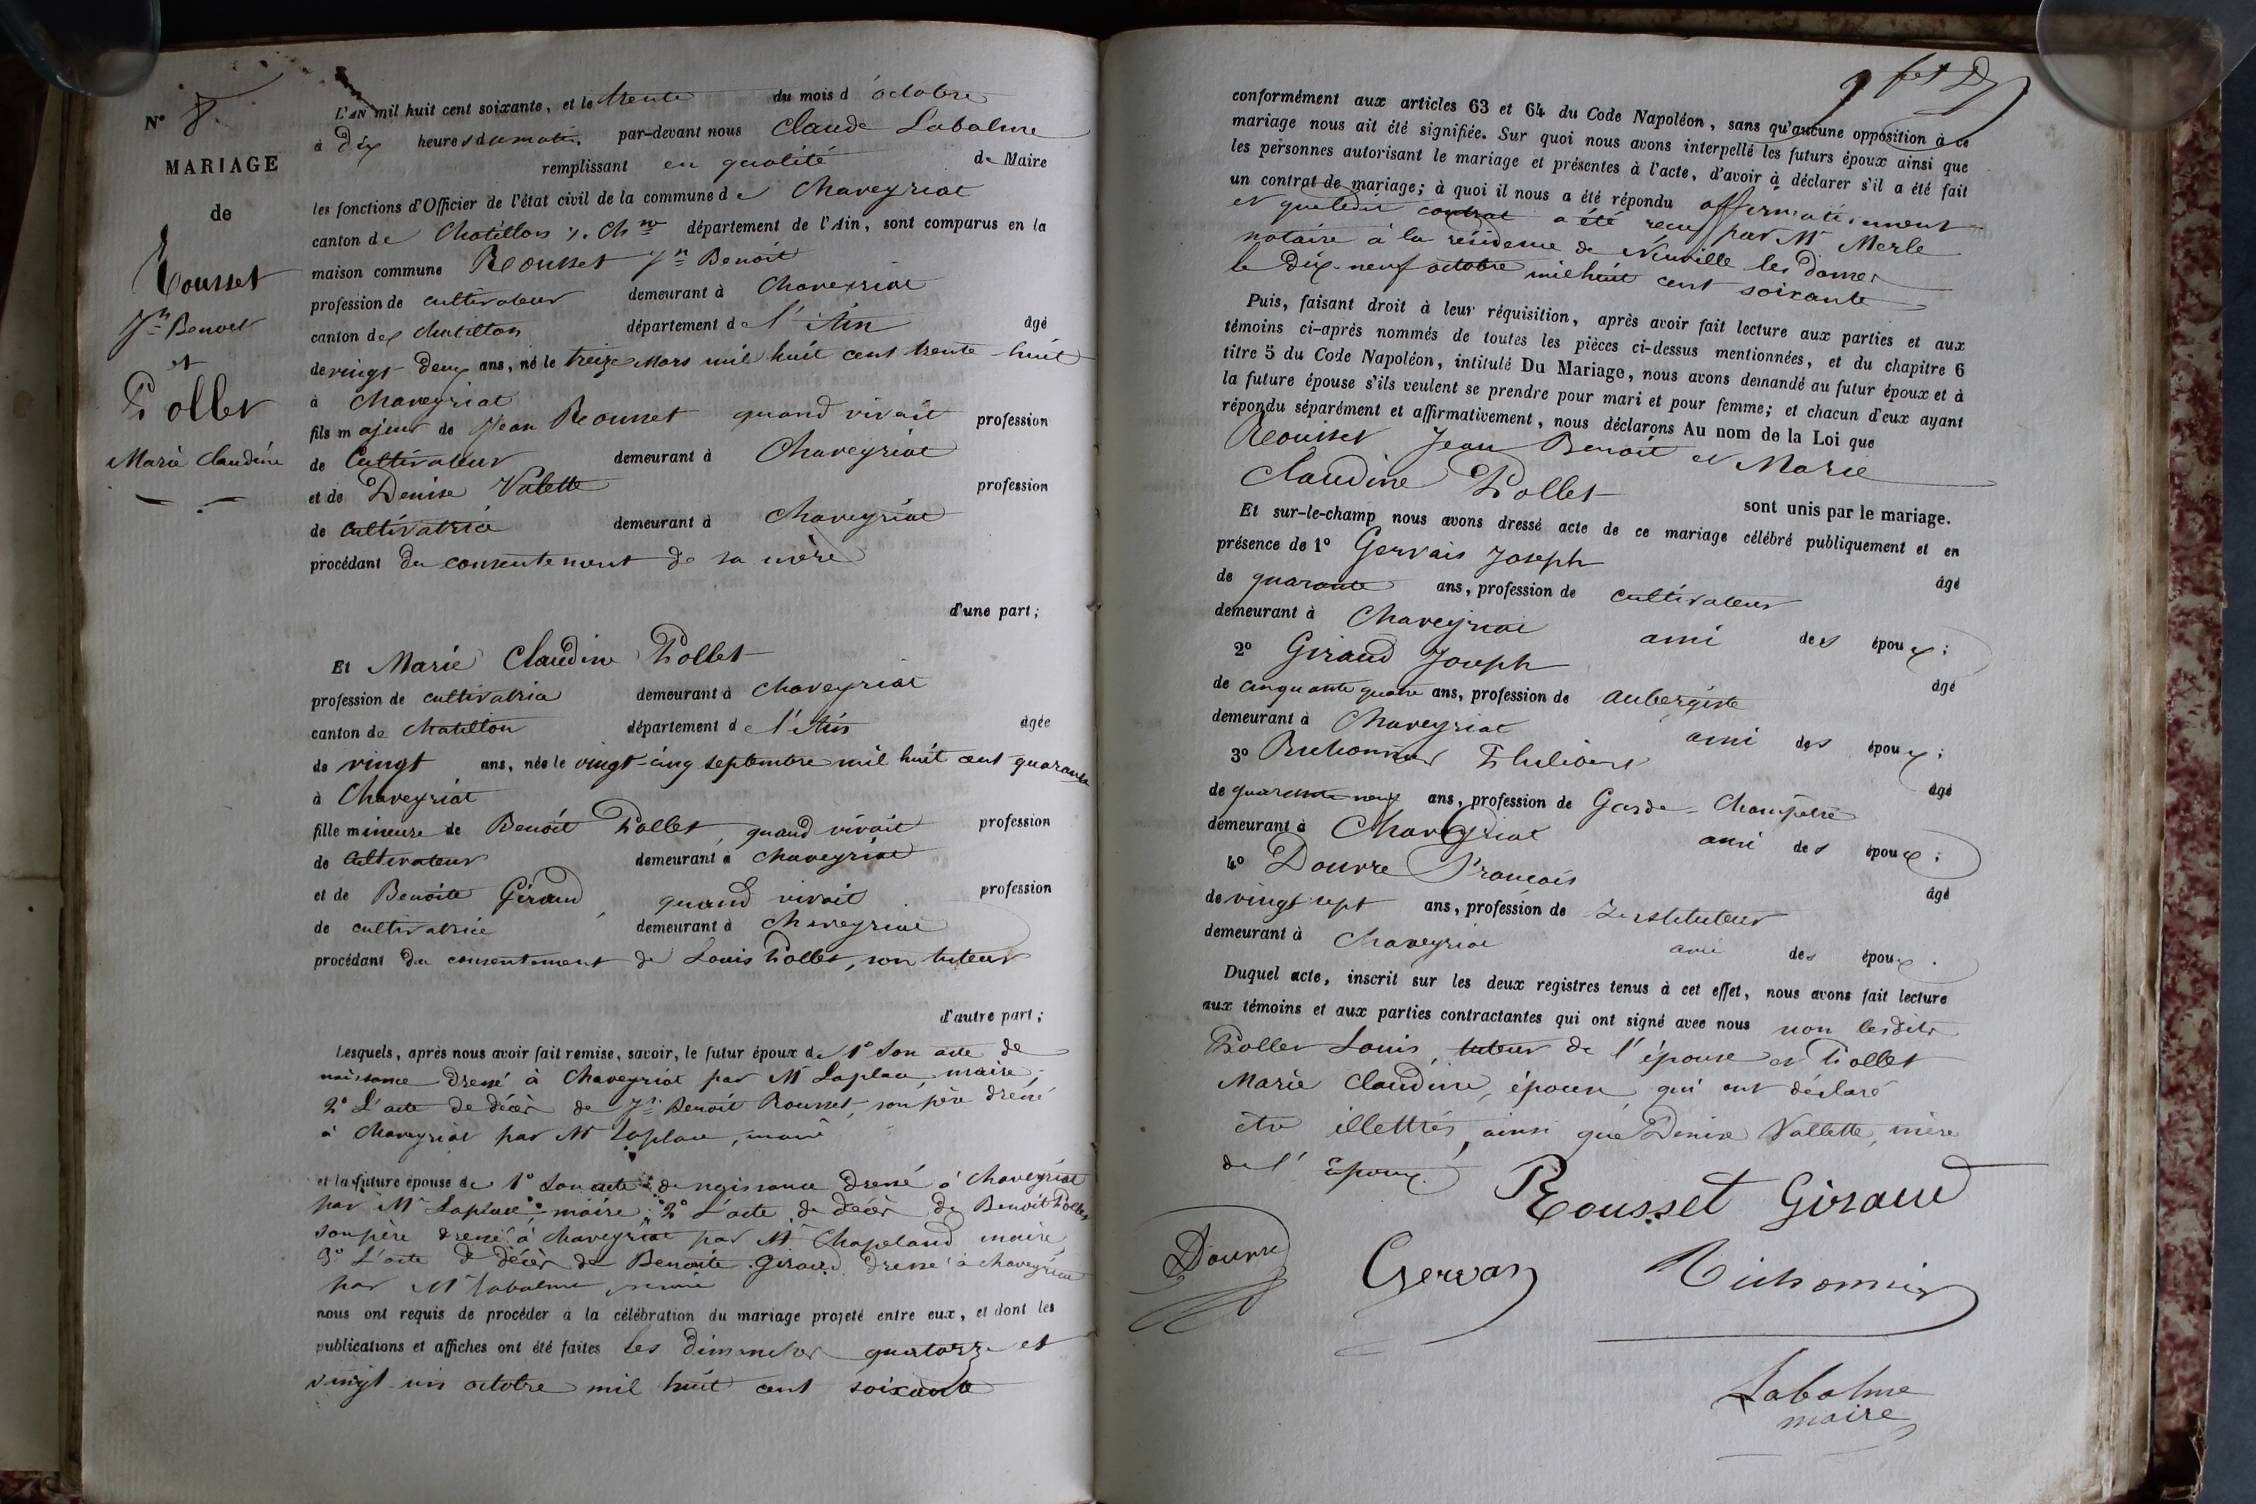 N° 8.
MARIAGE
de
Rousset
Jn Benoit
et
Pollet
Marie Claudine
L'AN mil huit cent soixante, et le trente du mois d'octobre
à dix heures du matin, par-devant nous Claude Labalme
remplissant en qualité de Maire
les fonctions d'Officier de l'état civil de la commune de Chaveyriat
canton de Chatillon s. Chne département de l'Ain, sont comparus en la
maison commune Rousset Jn Benoit
profession de cultivateur demeurant à Chaveyriat
canton de Chatillon département de l'Ain âgé
de vingt-deux ans, né le treize Mars mil huit cent trente-huit
à Chaveyriat
fils majeur de Jean Rousset quand vivait profession
de Cultivateur demeurant à Chaveyriat
et de Denise Valette profession
de Cultivatrice demeurant à Chaveyriat
procédant du consentement de sa mère
d'une part;
Et Marie Claudine Pollet
profession de cultivatrice demeurant à Chaveyriat
canton de Chatillon département de l'Ain âgée
de vingt ans, née le vingt-cinq septembre mil huit cent quarante
à Chaveyriat
fille mineure de Benoît Pollet, quand vivait profession
de Cultivateur demeurant à Chaveyriat
et de Benoite Giraud, quand vivait profession
de cultivatrice demeurant à Chaveyriat
procédant du consentement de Louis Pollet, son tuteur
d'autre part;
Lesquels, après nous avoir fait remise, savoir, le futur époux de 1° Son acte de
naissance dressé à Chaveyriat par Mr Laplace, maire;
2° L'acte de décès de Jn Benoit Rousset, son père dressé
à Chaveyriat par Mr Laplace, maire
et la future épouse de 1° Son acte de naissance dressé à Chaveyriat
par Mr Laplace maire; 2° L'acte de décès de Benoit Pollet
son père dressé à Chaveyriat par Mr Chapeland maire
3° L'acte de décès de Benoite Giraud dressé à Chaveyriat
par Mr Labalme maire
nous ont requis de procéder à la célébration du mariage projeté entre eux, et dont les
publications et affiches ont été faites les dimanches quatorze et
vingt-un octobre mil huit cent soixante
conformément aux articles 63 et 64 du Code Napoléon, sans qu'aucune opposition à ce
mariage nous ait été signifiée. Sur quoi nous avons interpellé les futurs époux ainsi que
les personnes autorisant le mariage et présentes à l'acte, d'avoir à déclarer s'il a été fait
un contrat de mariage; à quoi il nous a été répondu affirmativement
et que ledit contrat a été reçu par Mr Merle
notaire à la résidence de Neuville les Dames
le Dix-neuf octobre mil huit cent soixante
Puis, faisant droit à leur réquisition, après avoir fait lecture aux parties et aux
témoins ci-après nommés de toutes les pièces ci-dessus mentionnées, et du chapitre 6
titre 5 du Code Napoléon, intitulé Du Mariage, nous avons demandé au futur époux et à
la future épouse s'ils veulent se prendre pour mari et pour femme; et chacun d'eux ayant
répondu séparément et affirmativement, nous déclarons Au nom de la Loi que
Rousset Jean Benoit et Marie
Claudine Pollet
sont unis par le mariage.
Et sur-le-champ nous avons dressé acte de ce mariage célébré publiquement et en
présence de 1° Gervais Joseph âgé
de quarante ans, profession de cultivateur
demeurant à Chaveyriat ami des époux;
2° Giraud Joseph âgé
de cinquante quatre ans, profession de aubergiste
demeurant à Chaveyriat ami des époux;
3° Buchonnier Philibert âgé
de quarante neuf ans, profession de Garde-Champêtre
demeurant à Chaveyriat ami des époux;
4° Dourre François âgé
de vingt sept ans, profession de Instituteur
demeurant à Chaveyriat ami des époux.
Duquel acte, inscrit sur les deux registres tenus à cet effet, nous avons fait lecture
aux témoins et aux parties contractantes qui ont signé avec nous non lesdits
Pollet Louis, tuteur de l'épouse et Pollet
Marie Claudine, épouse, qui ont déclaré
être illettrés, ainsi que Denise Vallette, mère
de l'époux.
Rousset Giraud
Dourre Gervais
Labalme
maire